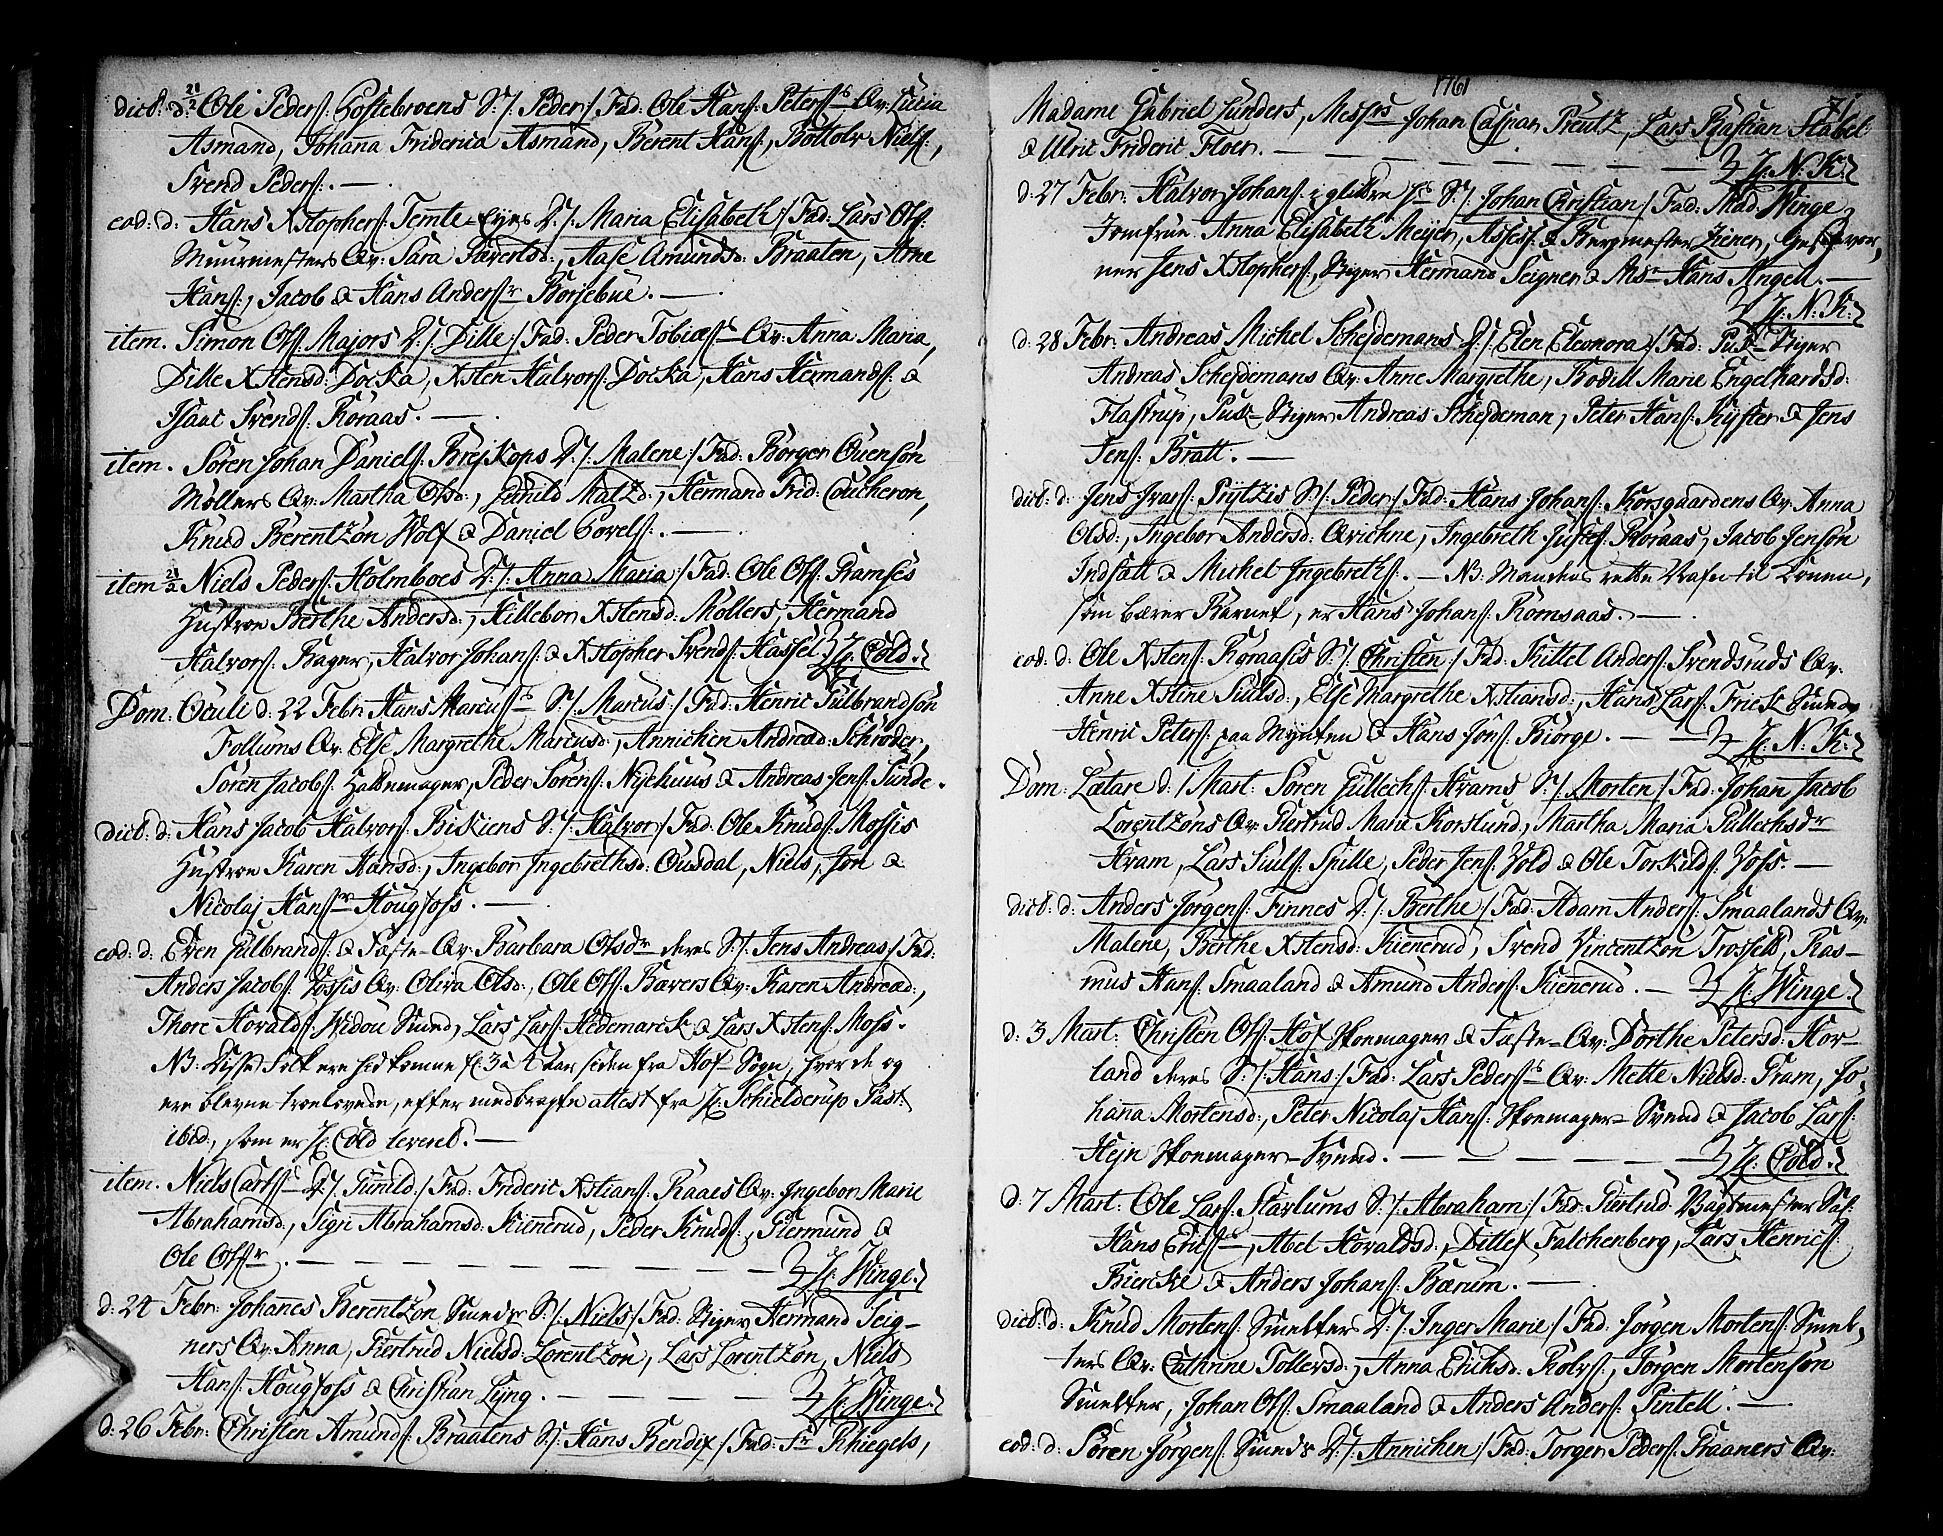 dict: d: 21/2 Ole Peders: Hostebroens S:/: Peder:/ Fad: Ole Hans: Peters:s Qv: Lucia
Asmand, Johana Friderica Asmand, Berent Hans:, Bottolv Niels:,
Svend Peders:. —
eod: d: Hans Xstophers: Temte-Eyes D:/: Maria Elisabeth:/ Fad: Lars Ols:
Muurmesters Qv: Sara Siverts d:, Aase Amunds d: Braaten, Arne
Hans:, Jacob & Hans Anders:r Borsebue. —
item. Simon Ols: Majors D:/: Dille:/ Fad: Peder Tobiæs:s Qv: Anna Maria,
Dille Xstensd: Docka, Xsten Halvors: Docka, Hans Hermands: &
Isaac Svends: Roraas. —
item. Sören Johan Daniels: Brejkops D:/: Malene:/ Fad: Börger Ouensön
Möllers Qv: Martha Olsd:, Gunild Matzd:, Hermand Frid: Coucheron,
Knud Berentzön Wolf & Daniel Povels:. —
item 21/2 Niels Peders: Holmboes D:/: Anna Maria:/ Fad: Ole Ols: Ramses
Hustroe Berthe Andersd:, Hillebor Xstensd: Möllers, Hermand
Halvors: Bager, Halvor Johans: & Xstopher Svends: Hassel. H: Cold.
Dom. Oculi d: 22 Febr: Hans Marcus:s S:/: Marcus:/ Fad: Henric Gulbrandsön
Follums Qv: Else Margrethe Marcusd:, Annichen Andread: Schröder,
Sören Jacobs: Hattemager, Peder Sörens: Nyehuus & Andreas Jens: Sunde.
dict: d: Hans Jacob Halvors: Biskiens S:/: Halvor:/ Fad: Ole Knuds: Mossis
Hustroe Karen Hansd:, Ingebor Ingebrethsd: Ousdal, Niels, Jon &
Nicolaj Hans:r Hougfoss. —
eod: d: Even Gulbrands: & Fæste-Qv: Barbara Olsdr deres S:/: Jens Andreas:/ Fad:
Anders Jacobs: Vossis Qv: Oliva Olsd:, Ole Ols: Bævers Qv: Karen Andread:,
Thore Hovalds: Widou Smed, Lars Lars: Hedemarck & Lars Xstens: Moss.
NB: Disse Folk ere hidkomne f: 3 a 4 Aar siden fra Hof Sogn, hvor de og
ere blevne troelovede, efter medbragte attest fra H: Schielderup Past:
ibid:, som er H: Cold leveret. —
item. Niels Carls:s D:/: Gunild:/ Fad: Frideric Xstians: Raaes Qv: Ingebor Marie
Abrahamsd:, Sigri Abrahamsd: Kienerud, Peder Knuds:, Giermund &
Ole Ols:r. — H: Winge.
d: 24 Febr: Johanes Berentzön Smeds S:/: Niels:/ Fad: Stiger Hermand Seig-
ners Qv: Anna, Giertrud Nielsd: Lorentzön, Lars Lorentzön, Niels
Hans: Hougfoss & Christian Lyng. — H: Winge.
d: 26 Febr: Christen Amunds: Braatens S:/: Hans Bendix:/ Fad: Fr Khiegels,
1761
71
Madame Gabriel Lunders, Messrs Johan Caspar Preutz, Lars Bastian Stabel
& Ulric Frideric Floer. — H: N. K:
d: 27 Febr: Halvor Johans: i glittre H:s S:/: Johan Christian:/ Fad: Mad: Winge,
Jomfrue Anna Elisabeth Meyer, Assess: & Bergmester Ziener, Geschwor,
ner Jens Xstophers:, Stiger Hermand Seigner & Msr Hans Angell. —
H: N. K:
d: 28 Febr: Andreas Michel Scheydemans D:/: Elen Eleonora:/ Fad: Puk-Stiger
Andreas Scheydemans Qv: Anne Margrethe, Bodil Marie Engelhardsd:
Flastrup, Puk-Stiger Andreas Scheydeman, Peter Hans: Kyster & Jens
Jens: Bratt. —
dict: d: Jens Ivars: Prytzis S:/: Peder:/ Fad: Hans Johans: Korsgaardens Qv: Anna
Olsd:, Ingebor Andersd: Qvichne, Ingebreth Justes: Roraas, Jacob Jensön
Indsatt & Michel Ingebreths:. — NB: Mandens rette Nafn til Konen,
som bærer Barnet, er Hans Johans: Romsaas. —
eod: d: Ole Xstens: Roraasis S:/: Christen:/ Fad: Kittel Anders: Svendsruds Qv:
Anne Xstine Siulsd:, Else Margrethe Xstiansd:, Hans Lars: Frick Smed
Henric Peters: paa Mynten & Hans Jöns: Biörge. — H: N. K:
Dom: Lætare d: 1 Mart: Sören Gullechs: Krams S:/: Morten:/ Fad: Johan Jacob
Lorentzöns Qv: Giertrud Marie Korslund, Martha Maria Gullechsdr
Kram, Lars Siuls: Spille, Peder Jens: Vold & Ole Torkilds: Voss. —
dict: d: Anders Jörgens: Finnes D:/: Berthe:/ Fad: Adam Anders: Smaalands Qv:
Malene, Berthe Xstensd: Kienerud, Svend Vincentzön Trosset, Ras-
mus Hans: Smaaland & Amund Anders: Kienerud. — H: Winge.
d: 3 Mart: Christen Ols: Hof Skomager & Fæste-Qv: Dorthe Petersd: Hor-
land deres S:/: Hans:/ Fad: Lars Peders:s Qv: Mette Nielsd: Fram, Jo,
hanna Mortensd:, Peter Nicolaj Hans: Skomager-Svend & Jacob Lars:
Hejn Skomager-Svend. — H: Cold.
d: 7 Mart: Ole Lars: Starlums S:/: Abraham:/ Fad: Giertrud Bagtmester Sal:
Hans Erics:s, Abel Hovaldsd:, Dittlef Falchenberg, Lars Henrics:
Biercke & Anders Johans: Bærum. —
dict: d: Knud Mortens: Smelters D:/: Inger Marie:/ Fad: Jörgen Mortens: Smel,
ters Qv: Cathrine Tollersd:, Anna Erichsd: Rolvs:, Jörgen Mortensön
Smelter, Johan Ols: Smaaland & Anders Anders: Pintell. —
eod: d: Sören Jörgens: Smeds D:/: Annichen:/ Fad: Torger Peders: Kraaners Qv: